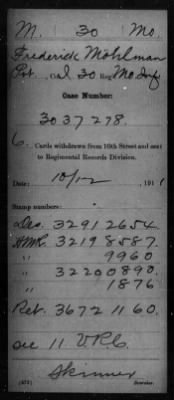 M. 30 Mo.
Frederick Mohlman
Pvt., Co. I, 30 Reg Mo Inf
Case Number:
3037278.
6. Cards withdrawn from 10th Street and sent
to Regimental Records Division.
Date: 10/12, 191
Stamp numbers:
Des. 32912654.
H.M.R. 32198587.
" 9960
" 32200890.
" 1876
Ret. 36721160.
see 11 V.R.C.
Skinner
(471) Searcher.